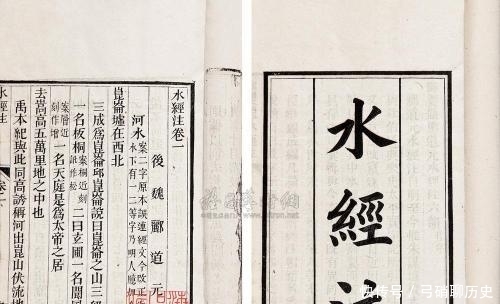 水經
水經注卷一
後魏酈道元
河水 案二字原本誤連經文今改正
水下有一二等字乃明人臆
崑崙墟在西北
三成爲崑崙邱崑崙說曰崑崙之山三
一名板桐 案桐近刻訛作松 二曰玄圃一名閬
案層近刻作增 一名天庭是爲太帝之居
去嵩高五萬里地之中也
禹本紀與此同高誘稱河出崑山伏流地
水經注
快传号/弓硝聊历史